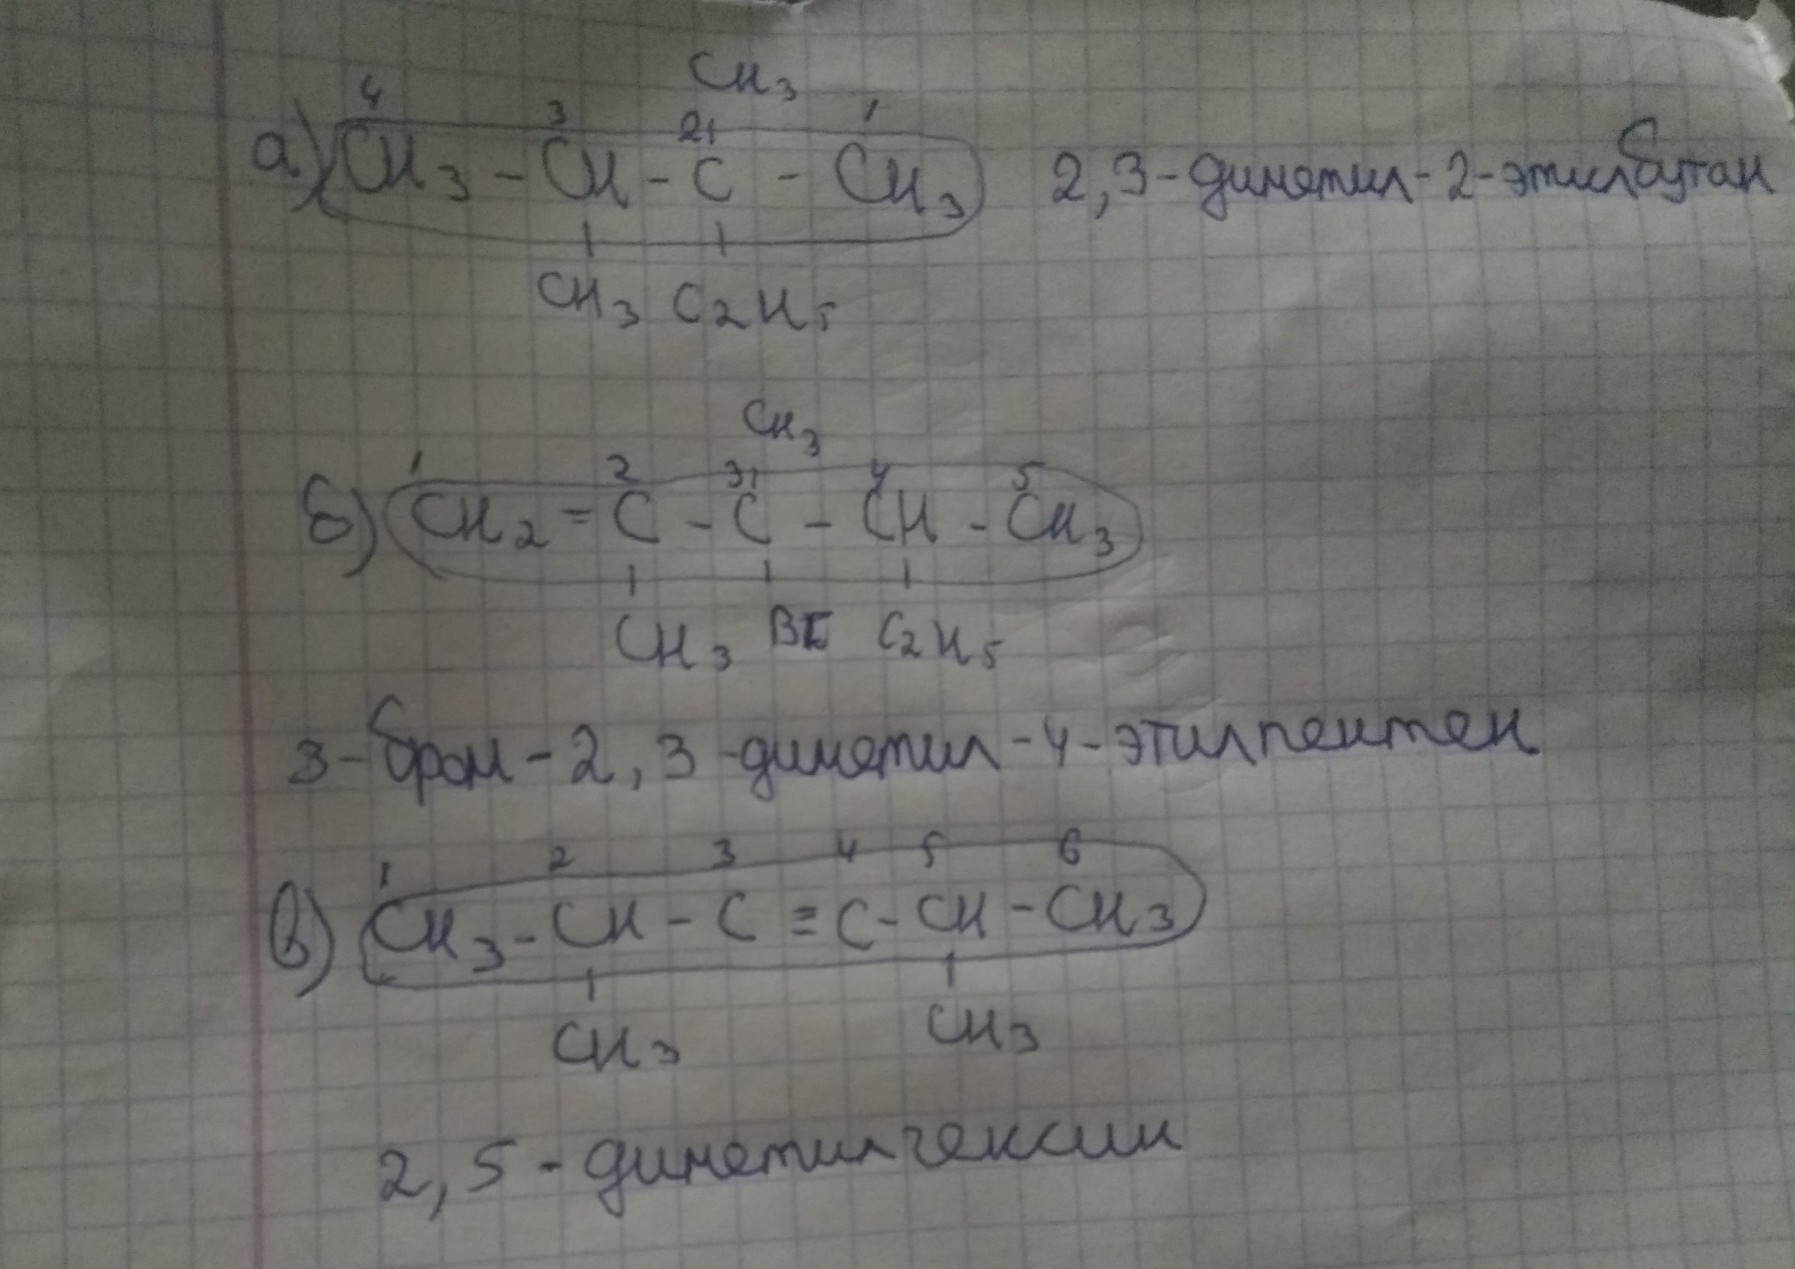 CH3
4 3 2 1
а) CH3 - CH - C - CH3 2,3-диметил-2-этилбутан
CH3 C2H5
CH3
1 2 3 4 5
б) CH2 = C - C - CH - CH3
CH3 Br C2H5
3-бром-2,3-диметил-4-этилпентен
1 2 3 4 5 6
в) CH3 - CH - C ≡ C - CH - CH3
CH3 CH3
2,5-диметилгексин